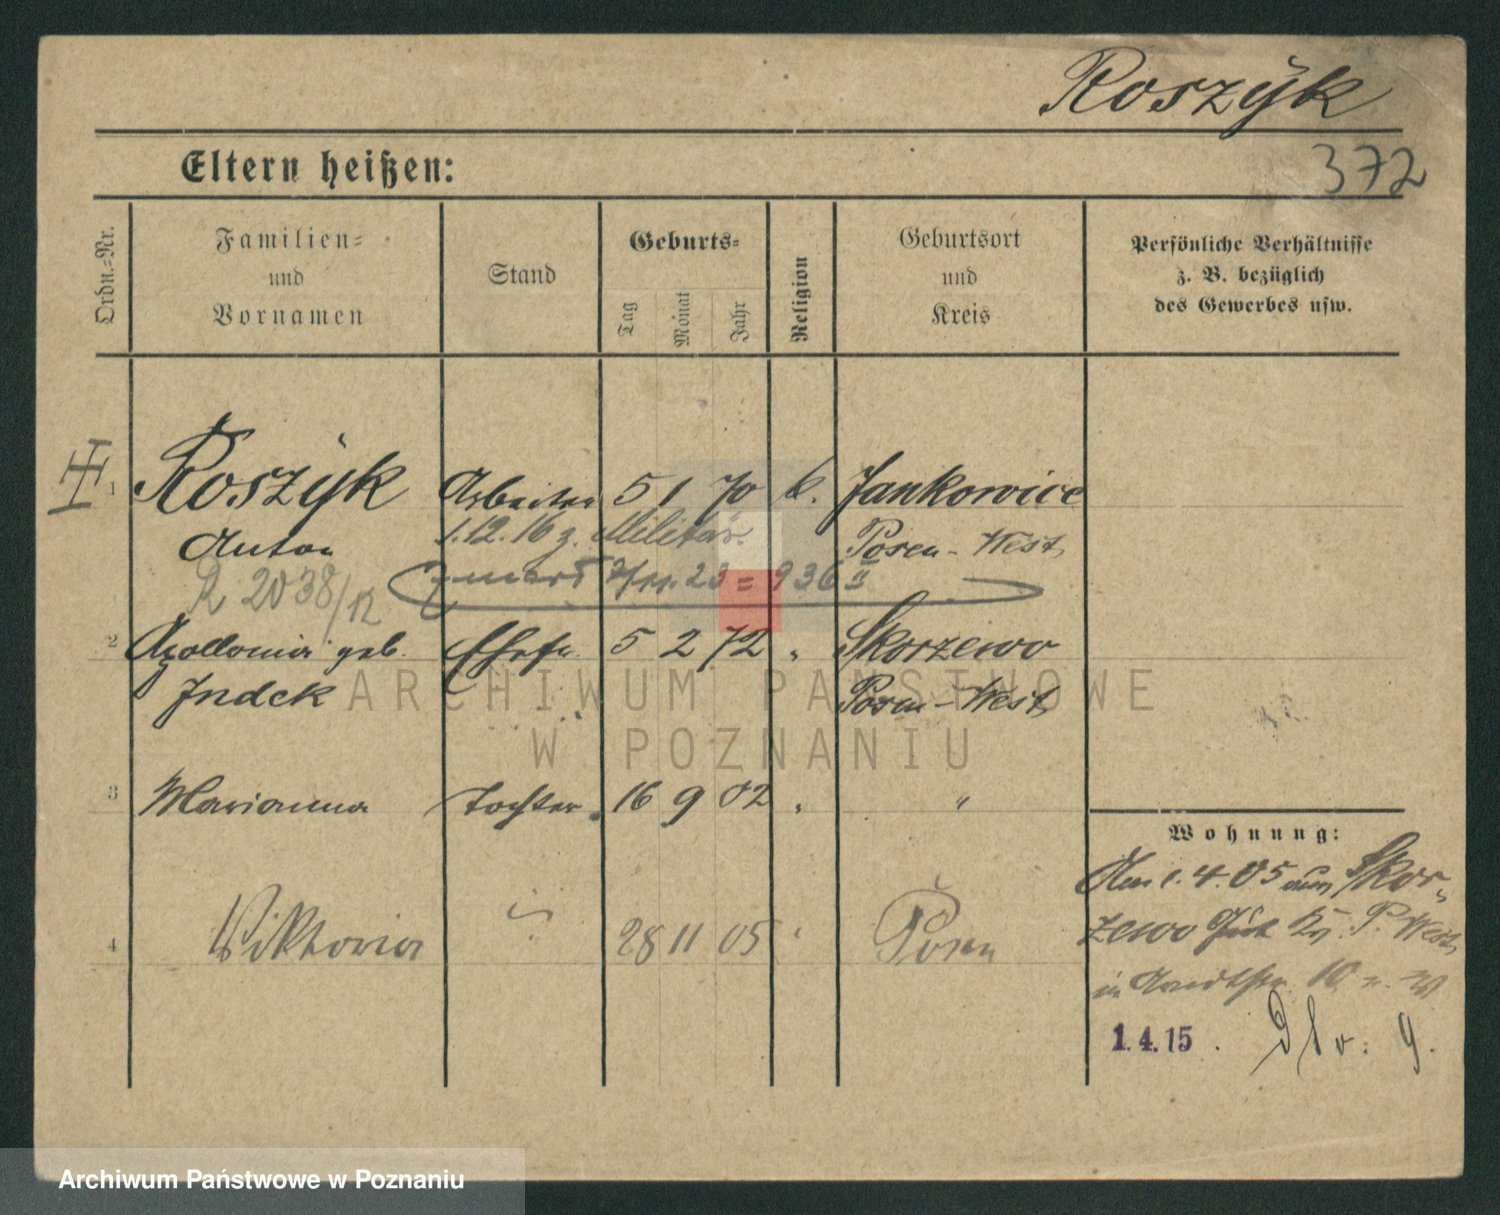 Roszÿk
Eltern heißen:
372
Ordn.=Nr.
Familien=
und
Vornamen
Stand
Geburts=
Tag
Monat
Jahr
Religion
Geburtsort
und
Kreis
Persönliche Verhältnisse
z. B. bezüglich
des Gewerbes usw.
1 Roszÿk Arbeiter 5 1 70 k. Jankowice
Anton
1.12.16 z. Militär.
Posen - West
zmarł 23 = 936
R 2038/12
2 Apollonia geb. Ehefr. 5 2 72 " Skorzewo
Indek Posen - West
3 Marianna Tochter 16 9 02 " "
Wohnung:
Am 1.4.05 aus Skor-
zewo Gut Kr. P. West
4 Viktoria " 28 11 05 " Posen
in 10
1.4.15. 9.
ARCHIWUM PAŃSTWOWE
W POZNANIU
Archiwum Państwowe w Poznaniu